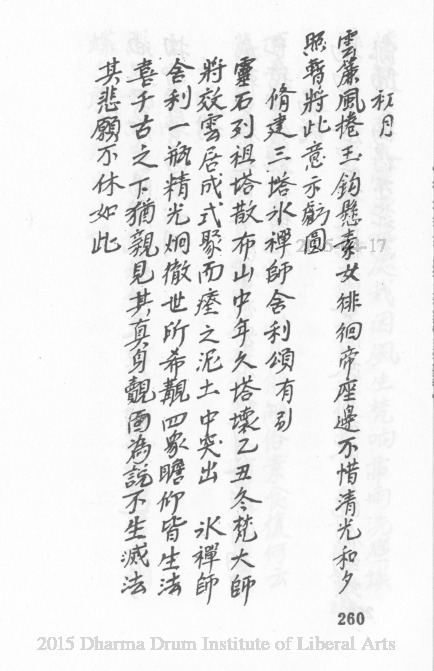 初月
雲簾風捲玉鈎懸素女徘徊帝座邊不惜清光和夕
照暫將此意示虧圓
脩建三塔氷禪師舍利頌有引
靈石列祖塔散布山中年久塔壞乙丑冬梵大師
將效雲居成式聚而瘞之泥土中突出 氷禪師
舍利一瓶精光烱徹世所希覯四眾瞻仰皆生法
喜千古之下猶親見其真身覿面為說不生滅法
其悲願不休如此
260
2015 Dharma Drum Institute of Liberal Arts